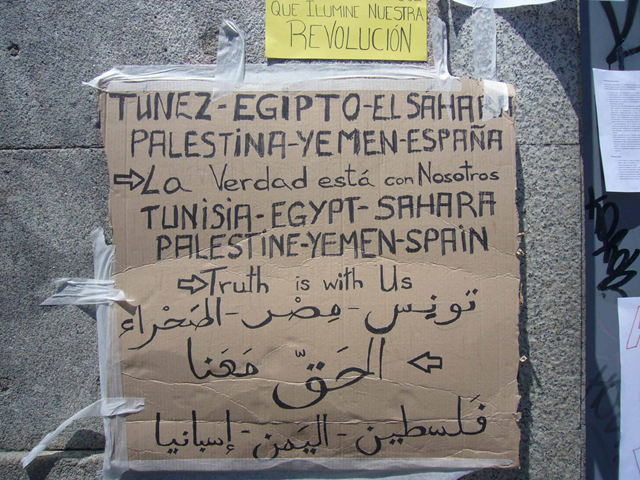 QUE ILUMINE NUESTRA
REVOLUCIÓN
TUNEZ-EGIPTO-EL SAHARA
PALESTINA-YEMEN-ESPAÑA
⇨La Verdad está con Nosotros
TUNISIA-EGYPT-SAHARA
PALESTINE-YEMEN-SPAIN
⇨Truth is with Us
تونِس - مِصْر - الصَحْراء
الحَقّ مَعَنا ⇦
فَلسطين - اليَمن - إسبانيا